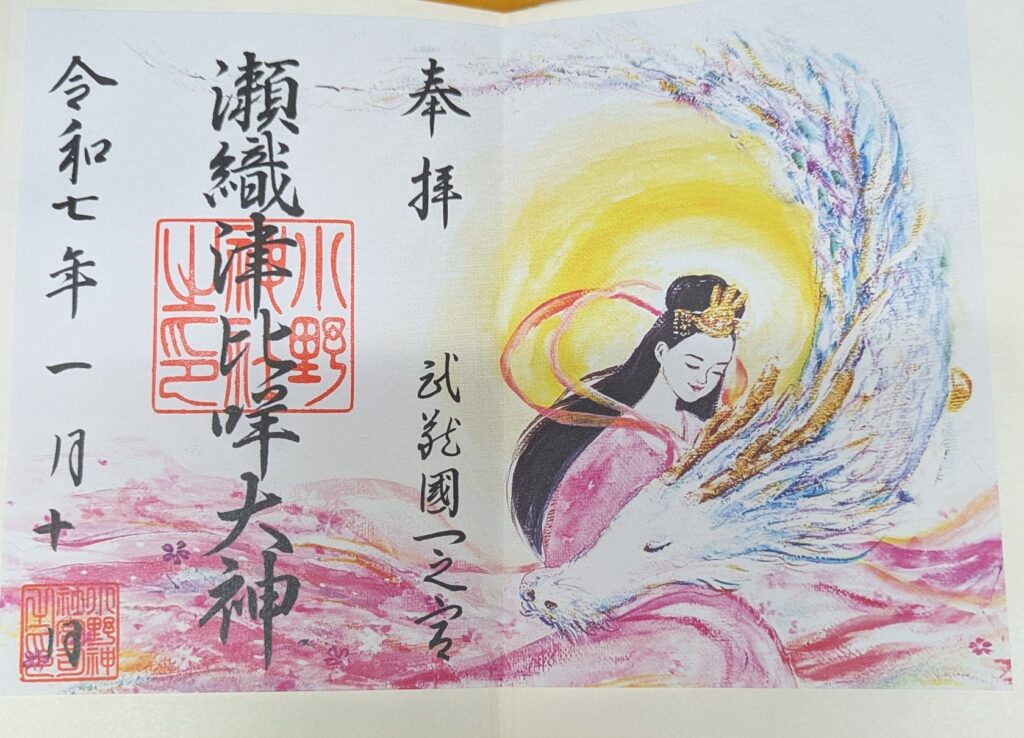 奉拝
武蔵國一之宮
瀬織津比咩大神
小野
神社
之印
令和七年一月十日
小野神